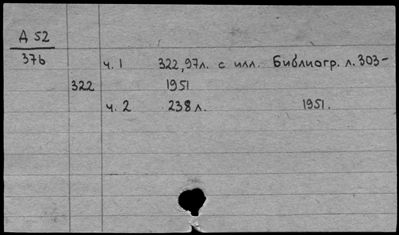 Д 52
376 ч. 1 322,97л. с илл. Библиогр. л. 303-
322 1951
ч. 2 238 л. 1951.